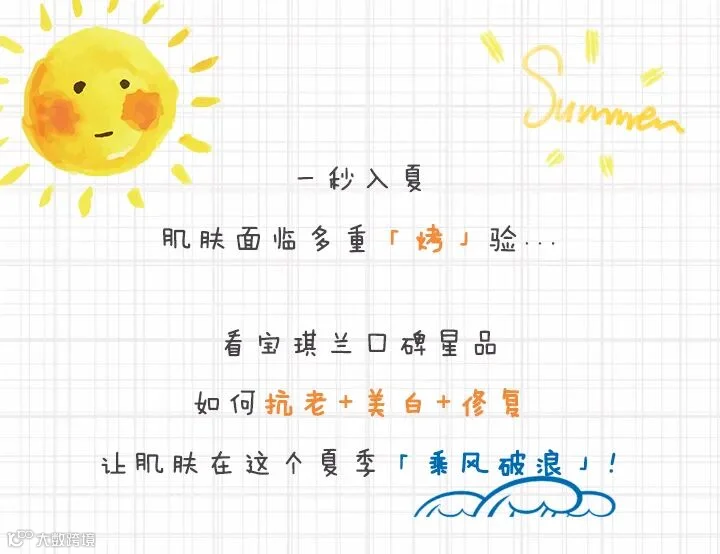 Summer
一秒入夏
肌肤面临多重「烤」验...
看宝琪兰口碑星品
如何抗老+美白+修复
让肌肤在这个夏季「乘风破浪」!
大数跨境